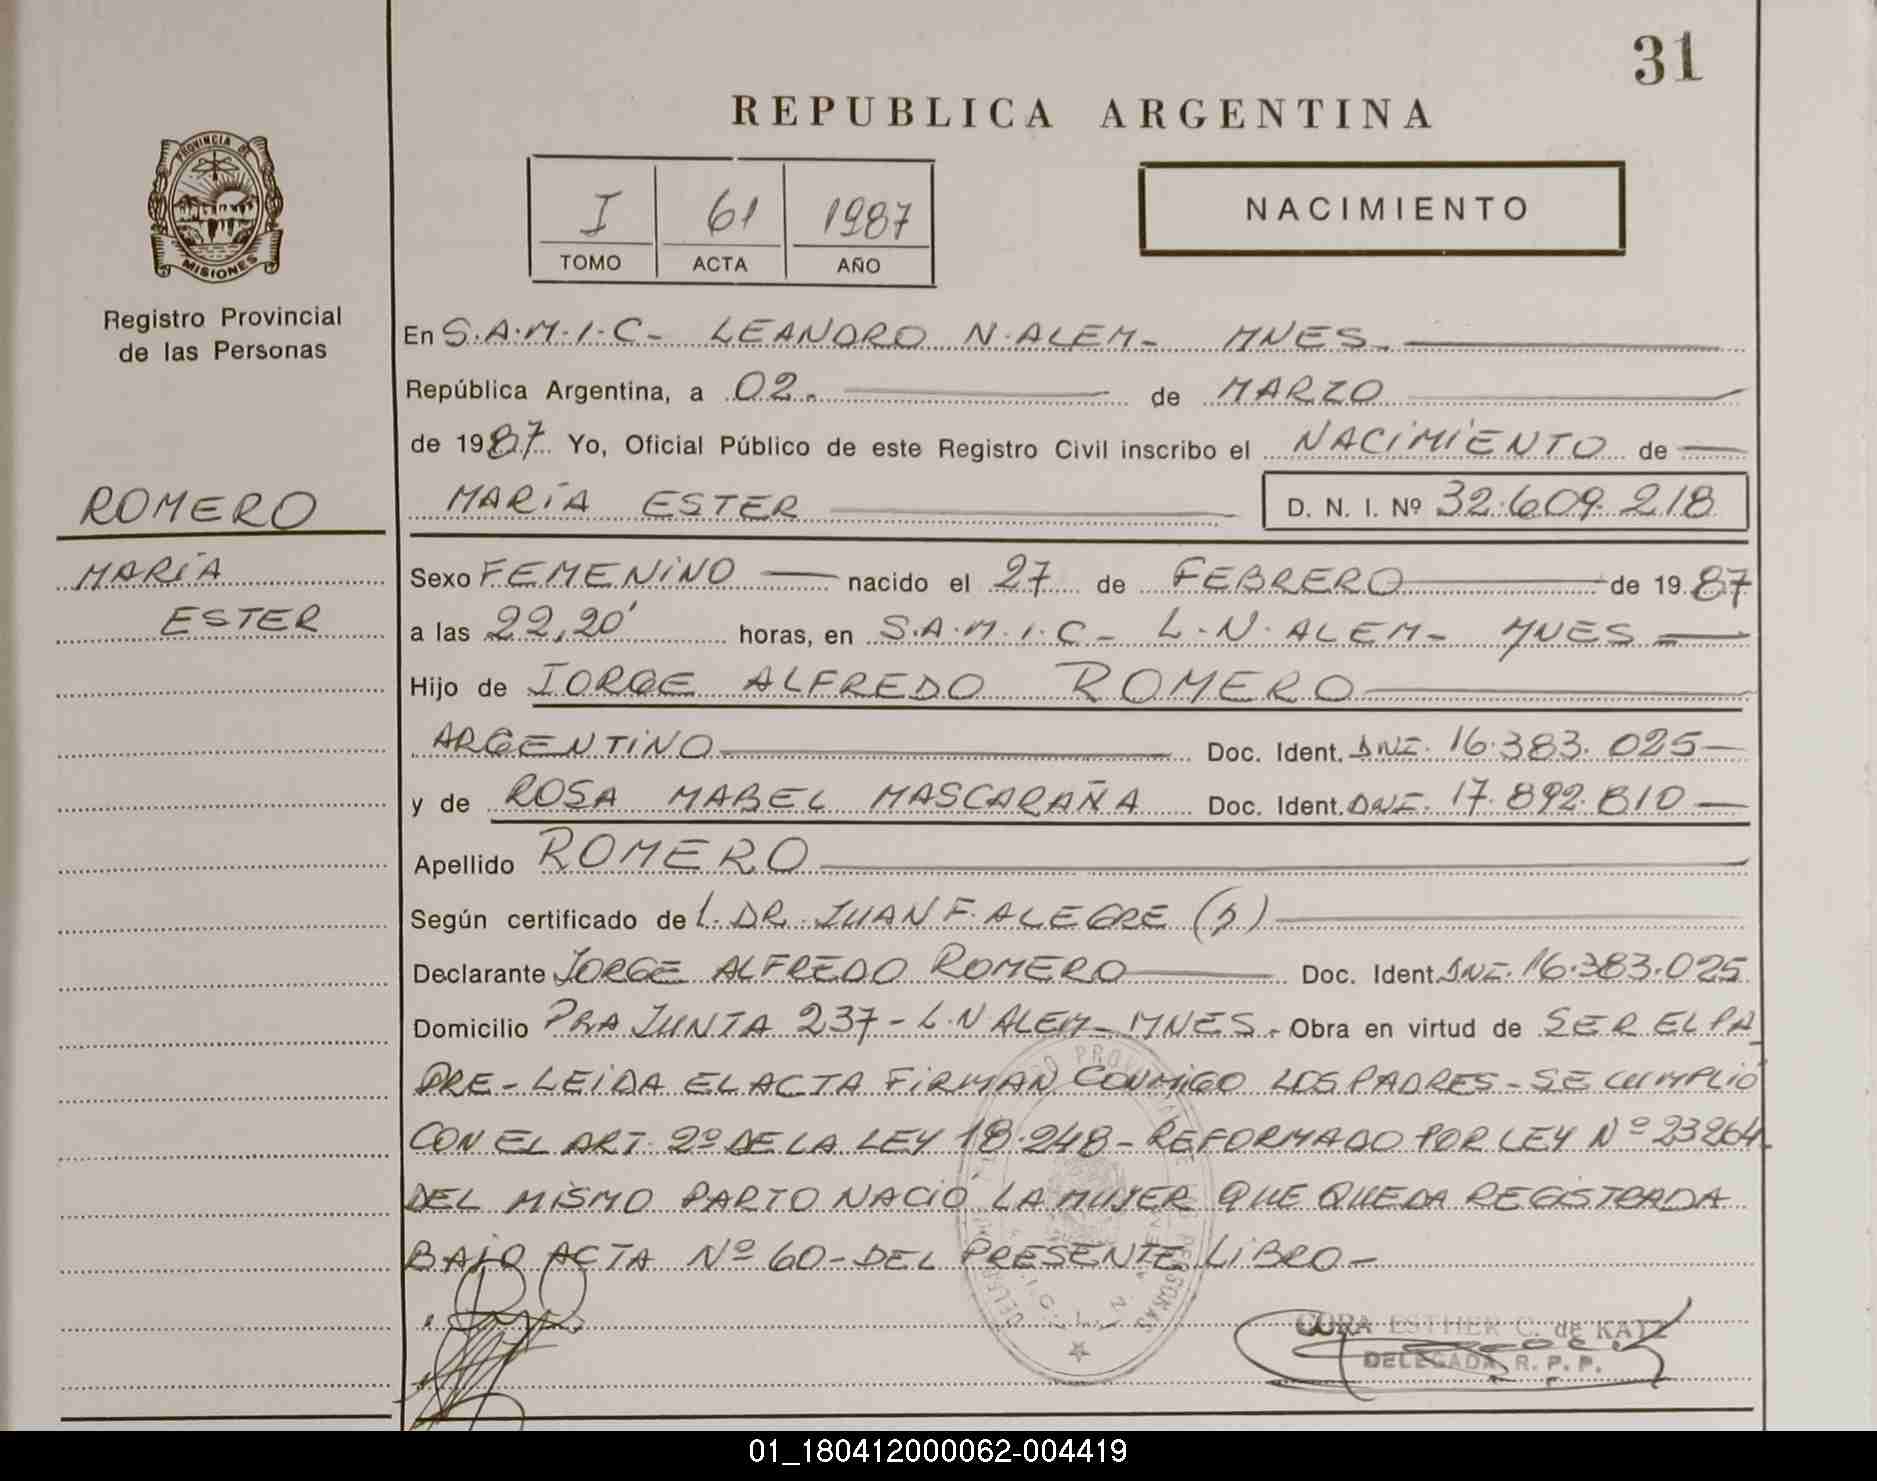 31
REPUBLICA ARGENTINA
PROVINCIA DE
MISIONES
Registro Provincial
de las Personas
I 61 1987
TOMO ACTA AÑO
NACIMIENTO
En S.A.M.I.C- LEANDRO N. ALEM- MNES.
República Argentina, a 02. de MARZO
de 1987. Yo, Oficial Público de este Registro Civil inscribo el NACIMIENTO de
ROMERO
MARÍA ESTER D. N. I. Nº 32.609.218
MARÍA
ESTER
Sexo FEMENINO nacido el 27 de FEBRERO de 1987
a las 22,20' horas, en S.A.M.I.C- L.N. ALEM- MNES
Hijo de JORGE ALFREDO ROMERO
ARGENTINO Doc. Ident. DNI. 16.383.025
y de ROSA MABEL MASCARAÑA Doc. Ident. DNI. 17.892.810
Apellido ROMERO
Según certificado de L. DR. JUAN F. ALEGRE (h)
Declarante JORGE ALFREDO ROMERO Doc. Ident. DNI. 16.383.025
Domicilio PRA JUNTA 237- L.N ALEM- MNES. Obra en virtud de SER EL PA
DRE- LEIDA EL ACTA FIRMAN CONMIGO LOS PADRES- SE CUMPLIÓ
CON EL ART. 2º DE LA LEY 18.248- REFORMADO POR LEY Nº 23264
DEL MISMO PARTO NACIÓ LA MUJER QUE QUEDA REGISTRADA
BAJO ACTA Nº 60- DEL PRESENTE LIBRO-
CORA ESTHER C. de KATZ
DELEGADA R. P. P.
01_180412000062-004419